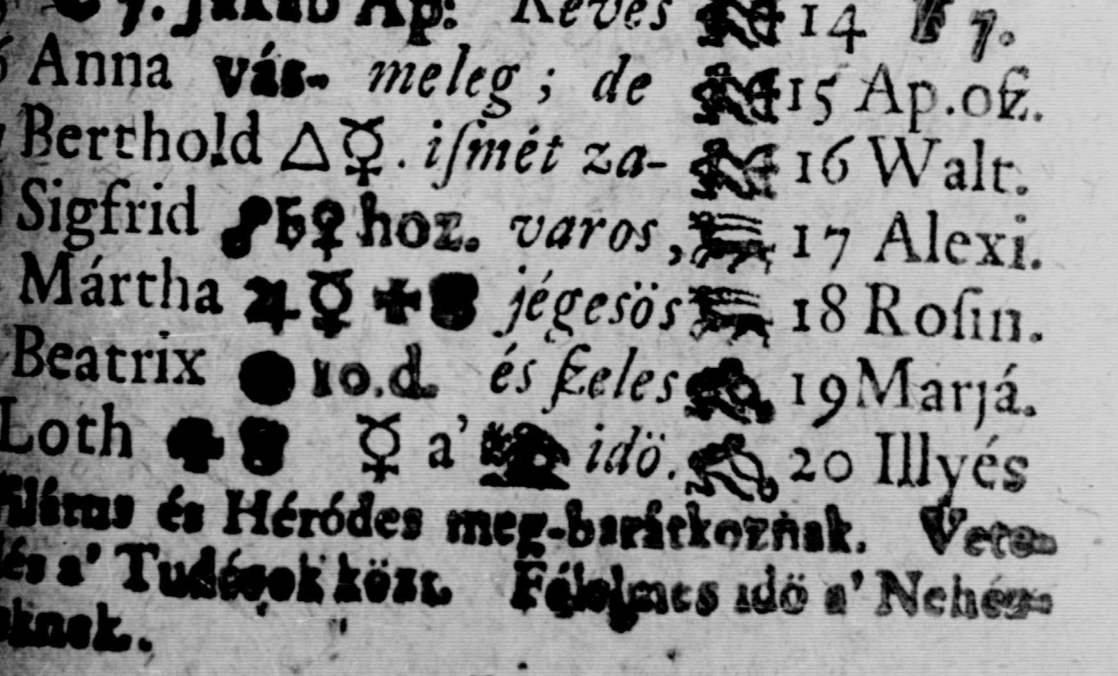 7. Jakab Ap: Keves 14 7.
Anna vás- meleg; de 15 Ap.oſz.
Berthold △☿. iſmét za- 16 Walt.
Sigfrid ☍♄♀ hoz. varos, 17 Alexi.
Mártha ♃☿ jégesös 18 Roſin.
Beatrix ● 10.d. és ſzeles 19 Marjá.
Loth ☿ a' idö. 20 Illyés
és Héródes meg-barátkoznak. Vete-
és a' Tudósok közt. Félelmes idö a' Nehéz-
eknek.